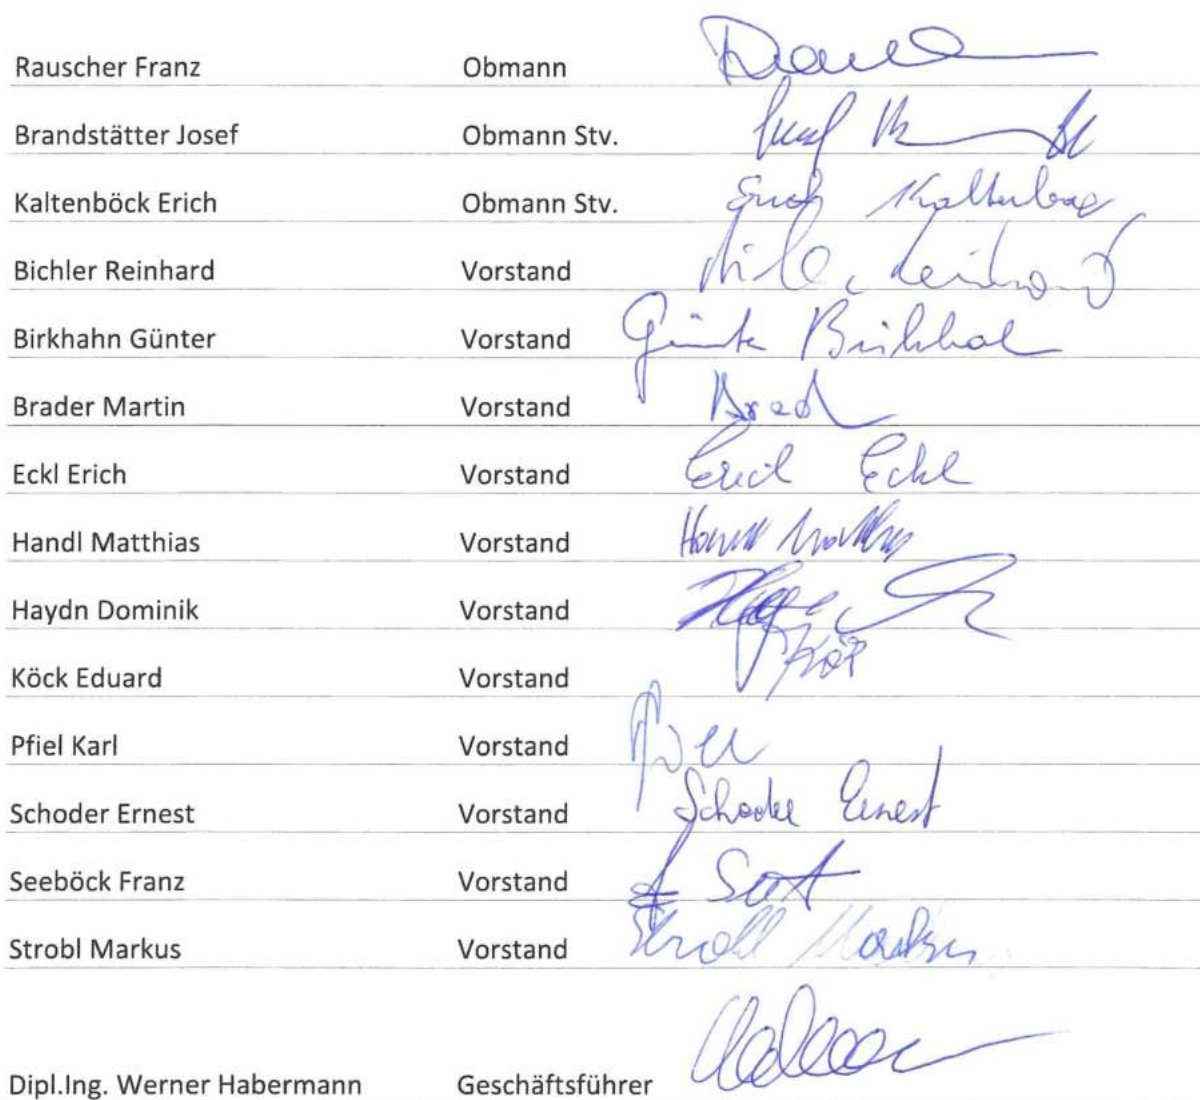 Rauscher Franz Obmann
Brandstätter Josef Obmann Stv.
Kaltenböck Erich Obmann Stv. Erich
Bichler Reinhard Vorstand
Birkhahn Günter Vorstand
Brader Martin Vorstand
Eckl Erich Vorstand Erich Eckl
Handl Matthias Vorstand
Haydn Dominik Vorstand
Köck Eduard Vorstand
Pfiel Karl Vorstand
Schoder Ernest Vorstand Schoder Ernest
Seeböck Franz Vorstand
Strobl Markus Vorstand Strobl Markus
Dipl.Ing. Werner Habermann Geschäftsführer